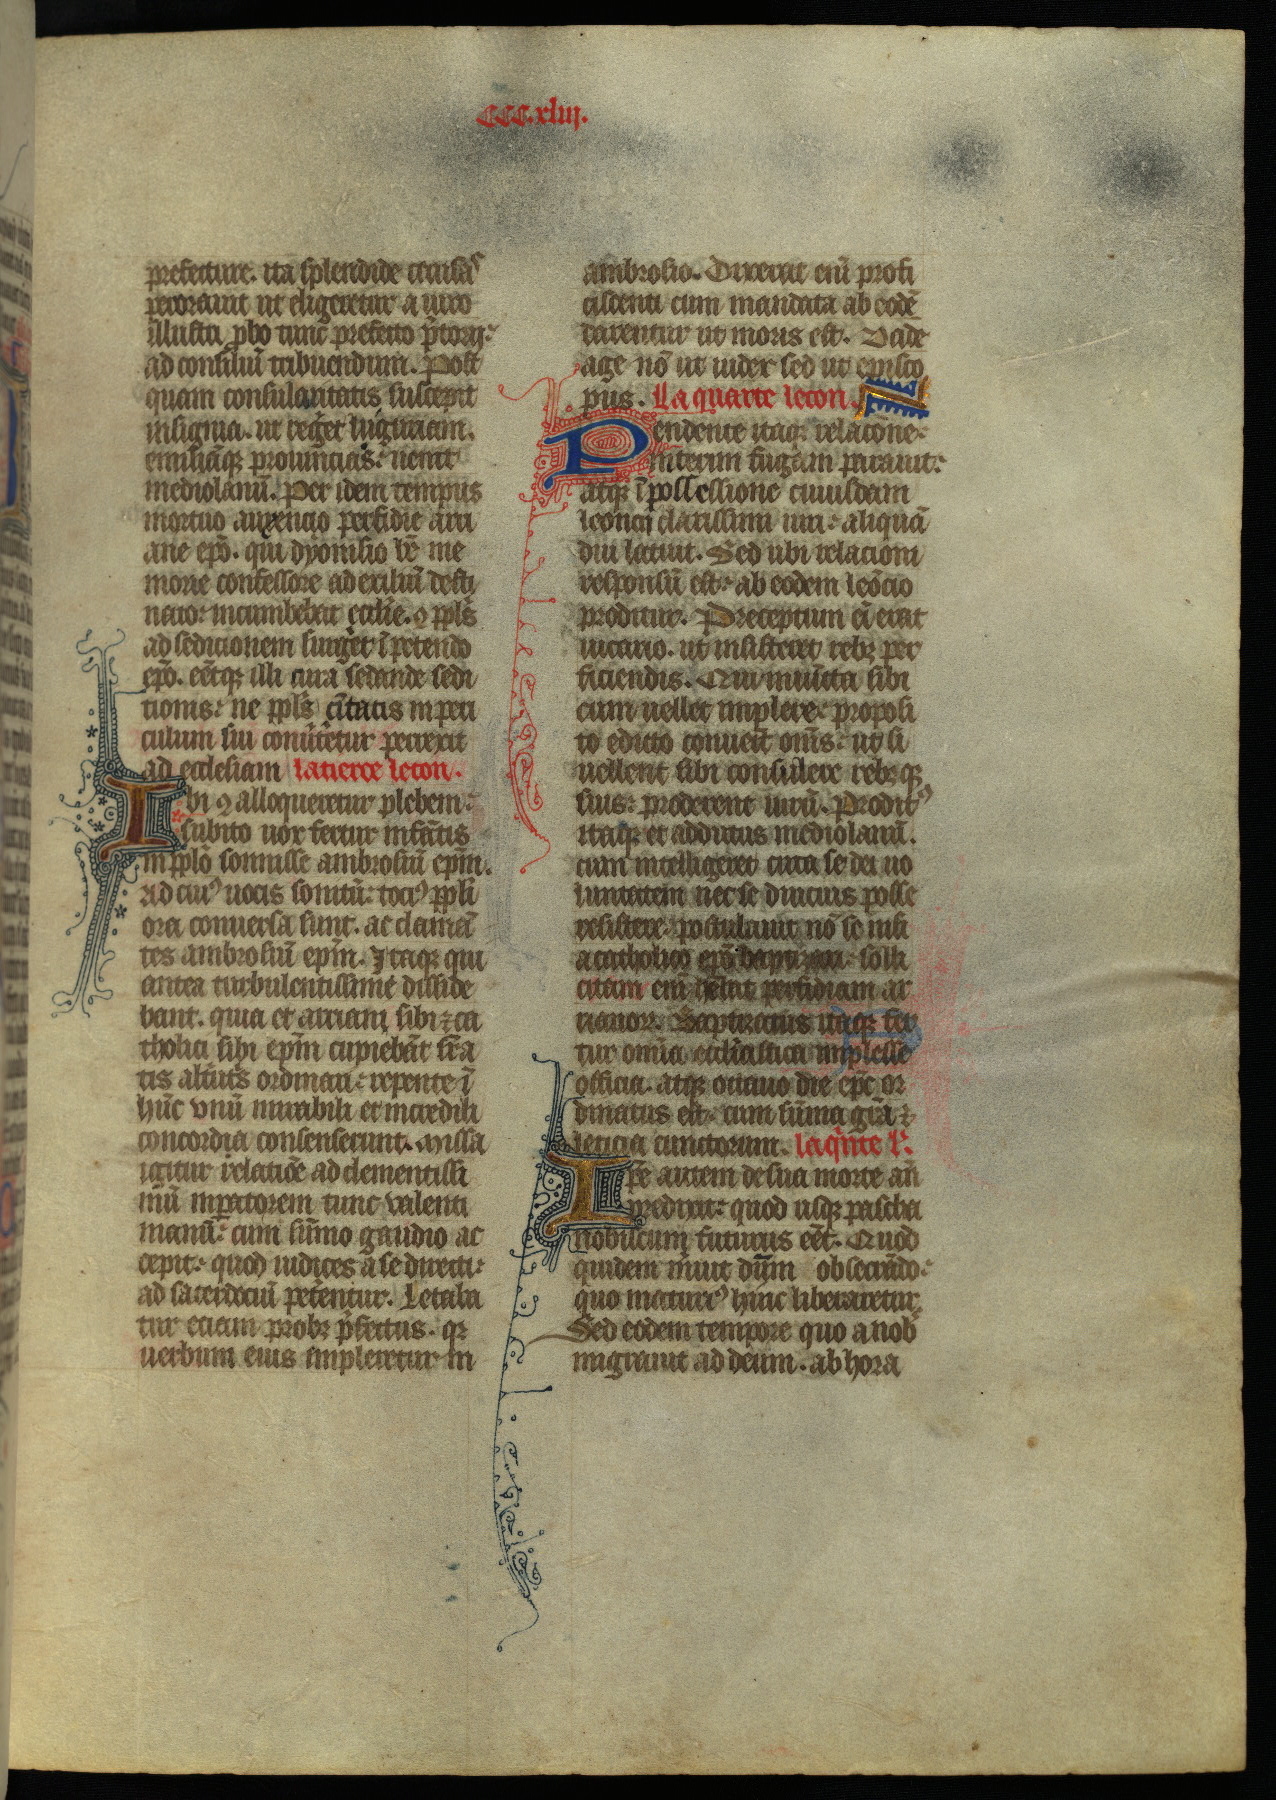 CCC.xliij.
prefecture. ita splendide causas
peroravit ut eligeretur a viro
illustri pbo tunc prefecto ptorij.
ad consiliū tribuendum. Post
quam consularitatis suscepit
insignia. ut regēt liguriam.
emiliaqʒ provincias: venit
mediolanū. Per idem tempus
mortuo auxencio perfidie arri
ane epō. qui dyonisio bē me
morie confessore ad exiliū desti
nato: incumbebat ecclie. ꝯ ppls
ad sedicionem surgēt ī petendo
epō. eētqʒ illi cura sedande sedi
tionis: ne ppls cītatis in peri
culum sui conūtetur perrexit
ad ecclesiam la tierce lecon.
Ibi ꝯ alloqueretur plebem:
subito vox fertur infātis
in pplo sonuisse ambrosiū epm.
ad cuiꝰ vocis sonitū: tociꝰ ppli
ora conversa sunt. ac clamā
tes ambrosiū epm. Itaqʒ qui
antea turbulentissime disside
bant. quia et arriani sibi ⁊ ca
tholici sibi epm cupiebāt sr̄a
tis altutis ordinari: repente ī
hūc unū mirabili et incredili
concordia consenserunt. Missa
igitur relatiōe ad clementissi
mū īmpatorem tunc valenti
manū: cum sūmo gaudio ac
cepit: quod iudices a se directi:
ad sacerdociū petentur. Letaba
tur etiam probꝰ pfectus. qꝛ
verbum eius impleretur in
ambrosio. Dixerat eni profi
ciscenti cum mandata ab eodē
darentur ut moris est. Vade
age nō ut iudex sed ut episco
pus. La quarte lecon.
Pendente itaqʒ relacone:
interim fugam paravit:
atqʒ ī possessione cuiusdam
leoncij clarissimi viri: aliquā
diu latuit. Sed ubi relacioni
responsū est: ab eodem leōcio
proditur. Preceptum eī erat
vicario. ut insisteret rebꝰ per
ficiendis. Qui iniūcta sibi
cum vellet implere: proposi
to edicto convēit oms: ut si
vellent sibi consulere rebꝰ qʒ
suis: proderent virū. Proditꝰ
itaqʒ et adductus mediolanū.
cum intelligeret circa se dei vo
luntatem nec se diucius posse
resistere: postulavit nō se nisi
a catholico epō baptizari: solli
citam eni hebat perfidiam ar
rianoꝝ. Baptizatus itaqʒ fer
tur omia ecclīastica implesse
officia. atqʒ octavo die epc or
dinatus est: cum sūma grā ⁊
leticia cunctorum. la qinte l'.
Ipe autem de sua morte an
predixit: quod usqʒ pascha
nobiscum futurus eēt. Quod
quidem mīuit dūm obsecrādo:
quo maturiꝰ hinc liberaretur.
Sed eodem tempore quo a nob
migravit ad deum. ab hora